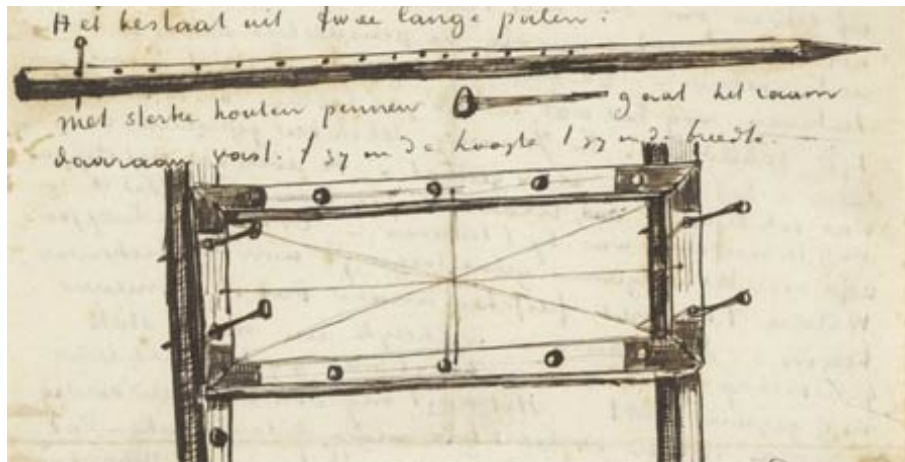 Het bestaat uit twee lange palen:
met sterke houten pennen gaat het raam
daaraan vast. 't zy in de hoogte 't zy in de breedte. —